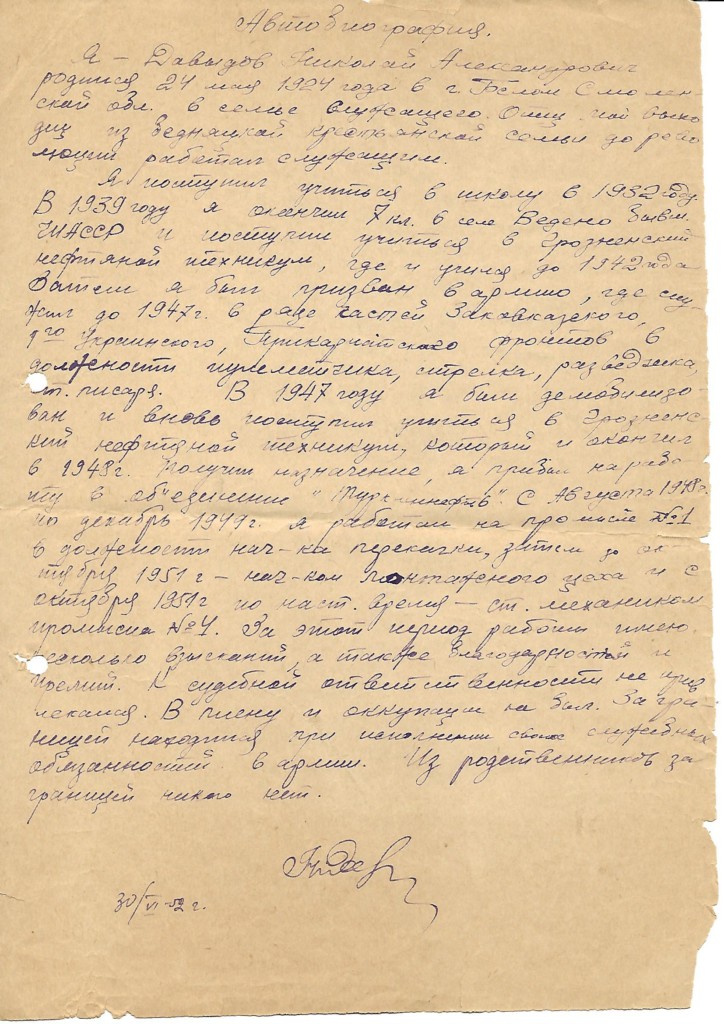 Автобиография.
Я – Давыдов Николай Александрович
родился 24 мая 1924 года в г. Белом Смолен-
ской обл. в семье служащего. Отец мой выхо-
дец из бедняцкой крестьянской семьи до рево
люции работал служащим.
Я поступил учиться в школу в 1932 году.
В 1939 году я окончил 7 кл. в селе Ведено бывш.
ЧИАССР и поступил учиться в Грозненский
нефтяной техникум, где и учился до 1942 года
Затем я был призван в армию, где слу-
жил до 1947 г. в ряде частей Закавказского,
Украинского, Прикарпатского фронтов в
должности пулеметчика, стрелка, разведчика,
ст. писаря. В 1947 году я был демобилизо-
ван и вновь поступил учиться в Грознен-
ский нефтяной техникум, который и окончил
в 1948 г. Получив назначение, я прибыл на рабо-
ту в об'единение "Туркменнефть". С Августа 1948 г.
по декабрь 1949 г. я работал на промысле №1
в должности нач-ка перекачки, затем до ок
тября 1951 г – нач-ком монтажного цеха и с
октября 1951 г по наст. время – ст. механиком
промысла №4. За этот период работы имею
несколько взысканий, а также благодарностей и
премий. К судебной ответственности не прив
лекался. В плену и оккупации не был. За гра-
ницей находился при исполнении своих служебных
обязанностей в армии. Из родственников за
границей никого нет.
30/VI-52 г.